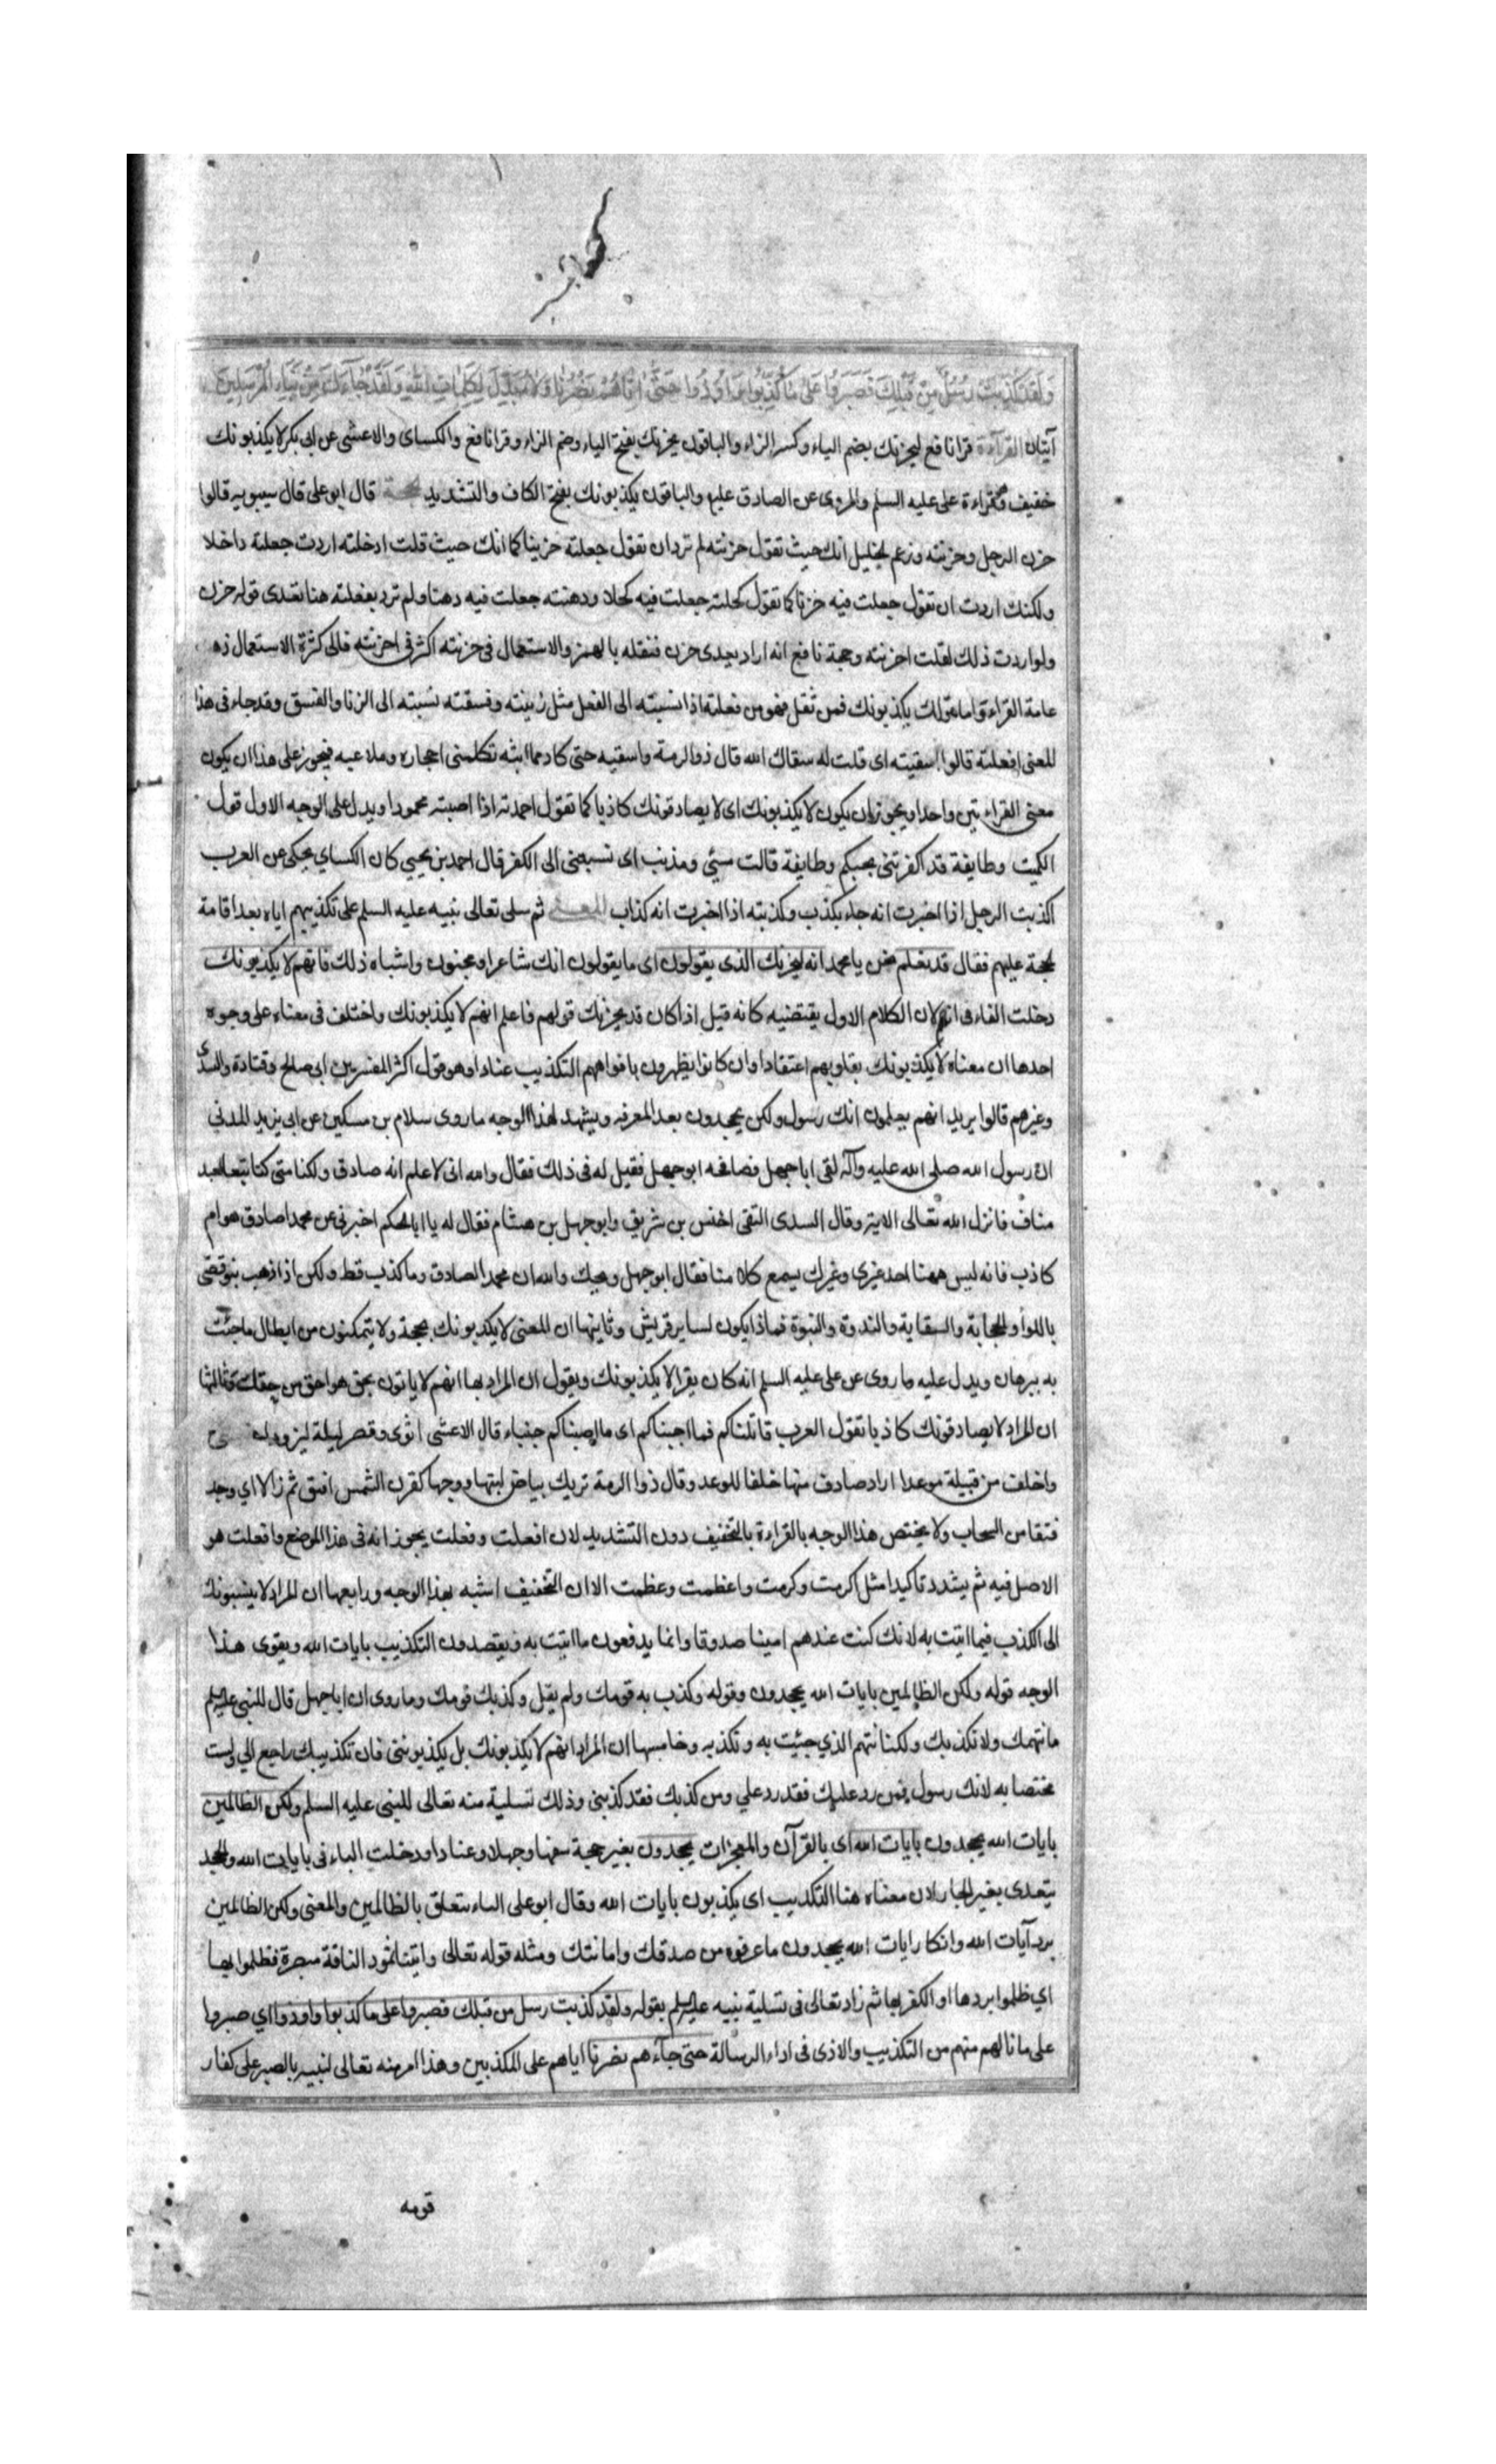 وَلَقَد كُذِّبَت رُسُلٌ مِن قَبلِكَ فَصَبَرُوا عَلى مَا كُذِّبُوا وَاُوذُوا حَتّى اَتَاهُم نَصرُنَا وَلا مُبَدِّلَ لِكَلِمَاتِ اللهِ وَلَقَد جَاءَكَ مِن نَبَاءِ المُرسَلِينَ
آيتان القرآءة قرا نافع ليحزنك بضم الياء وكسر الزاء والباقون يحزنك بفتح الياء وضم الزاء وقرا نافع والكسائ والاعشى عن ابي بكر لا يكذبونك
خفيف وهو قراءة على عليه السلم والمروى عن الصادق عليه والباقون يكذبونك بفتح الكاف والتشديد الحجة قال ابو على قال سيبويه قالوا
حزن الرجل وحزنته وزعم الخليل انك حيث تقول حزنته لم ترد ان تقول جعلته حزينا كما انك حيث قلت ادخلته اردت جعلته داخلا
ولكنك اردت ان تقول جعلت فيه حزنا كما تقول كحلته جعلت فيه كحلا ودهنته جعلت فيه دهنا ولم ترد بفعلته هنا تعدى قوله حزن
ولو اردت ذلك لقلت احزنته وحجة نافع انه اراد تعدى حزن فنقله بالهمز والاستعمال فى حزنته اكثر فى احزنته فالى كثرة الاستعمال ذه
عامة القراء واما قولك يكذبونك فمن ثقل فهو من فعلته اذا نسبته الى الفعل مثل زنيته وفسقته نسبته الى الزنا والفسق وقد جاء فى هذا
المعنى افعلته قالوا اسقيته اى قلت له سقاك الله قال ذو الرمة واسقيه حتى كاد مما ابثه تكلمنى احجاره وملاعبه فيجوز على هذا ان يكون
معنى القراءتين واحدا ويجوز ان يكون لا يكذبونك اى لا يصادفونك كاذبا كما تقول احمدته اذا اصبته محمودا ويدل على الوجه الاول قول
الكميت وطايفة قد اكفرتنى بحبكم وطايفة قالت مسيئ ومذنب اى نسبتنى الى الكفر قال احمد بن يحيى كان الكساي يحكى عن العرب
اكذبت الرجل اذا اخبرت انه جاء بكذب وكذبته اذا اخبرت انه كذاب المعنى ثم سلى تعالى نبيه عليه السلم على تكذيبهم اياه بعد اقامة
الحجة عليهم فقال قد نعلم نحن يا محمد انه ليحزنك الذى يقولون اى ما يقولون انك شاعر او مجنون واشباه ذلك فانهم لا يكذبونك
دخلت الفاء فى انهم لان الكلام الاول يقتضيه كانه قيل اذا كان قد يحزنك قولهم فاعلم انهم لا يكذبونك واختلف فى معناه على وجوه
احدها ان معناه لا يكذبونك بقلوبهم اعتقادا وان كانوا يظهرون بافواههم التكذيب عنادا وهو قول اكثر المفسرين ابى صالح وقتادة والسدى
وغيرهم قالوا يريد انهم يعلمون انك رسول ولكن يجحدون بعد المعرفه ويشهد لهذا الوجه ما روى سلام بن مسكين عن ابى يزيد المدني
ان رسول الله صلى الله عليه وآله لقى ابا جهل فصافحه ابو جهل فقيل له فى ذلك فقال والله انى لاعلم انه صادق ولكنا متى كنا تبعا لعبد
مناف فانزل الله تعالى الاية وقال السدى التقى اخنس بن شريق وابو جهل بن هشام فقال له يا ابا الحكم اخبرنى عن محمد اصادق هو ام
كاذب فانه ليس ههنا احد غيرى وغيرك يسمع كلامنا فقال ابو جهل ويحك والله ان محمد الصادق وما كذب قط ولكن اذا ذهب بنو قصى
باللوا والحجابة والسقاية والندوة والنبوة فماذا يكون لساير قريش وثانيها ان المعنى لا يكذبونك بحجة ولا يتمكنون من ابطال ما جئت
به ببرهان ويدل عليه ما روى عن على عليه السلم انه كان يقرا لا يكذبونك ويقول ان المراد بها انهم لا ياتون بحق هو احق من حقك وثالثها
ان المراد لا يصادفونك كاذبا تقول العرب قاتلناكم فما اجبناكم اى ما اصبناكم جبناء قال الاعشى اثوى وقصر ليلة ليزودا
واخلف من قبيلة موعدا اراد صادف منها خلفا للوعد وقال ذوا الرمة تريك بياض لبتها ووجها كقرن الشمس افتق ثم زالا اي وجد
فتقا من السحاب ولا يختص هذا الوجه بالقراءة بالتخفيف دون التشديد لان افعلت وفعلت يجوز انه فى هذا الموضع وافعلت هو
الاصل فيه ثم يشدد تاكيدا مثل اكرمت وكرمت واعظمت وعظمت الا ان التخفيف اشبه بهذا الوجه ورابعها ان المراد لا ينسبونك
الى الكذب فيما اتيت به لانك كنت عندهم امينا صدوقا وانما يدفعون ما اتيت به ويقصدون التكذيب بايات الله ويقوى هذا
الوجه قوله ولكن الظالمين بايات الله يجحدون وقوله وكذب به قومك ولم يقل وكذبك قومك وما روى ان ابا جهل قال للنبى عليه السلم
ما نتهمك ولا نكذبك ولكنا نتهم الذي جئت به ونكذبه وخامسها ان المراد انهم لا يكذبونك بل يكذبوننى فان تكذيبك راجع الي ولست
مختصا به لانك رسول فمن رد عليك فقد رد علي ومن كذبك فقد كذبنى وذلك تسلية منه تعالى للنبى عليه السلم ولكن الظالمين
بايات الله يجحدون بايات الله اى بالقرآن والمعجزات يجحدون بغير حجة سفها وجهلا وعنادا ودخلت الباء فى بايات الله والجحد
يتعدى بغير الجار لان معناه هنا التكذيب اى يكذبون بايات الله وقال ابو على الباء تتعلق بالظالمين والمعنى ولكن الظالمين
برد آيات الله وانكار ايات الله يجحدون ما عرفوه من صدقك وامانتك ومثله قوله تعالى واتينا ثمود الناقة مبصرة فظلموا بها
اي ظلموا بردها او الكفر بها ثم زاد تعالى فى تسلية نبيه عليه السلم بقوله ولقد كذبت رسل من قبلك فصبروا على ما كذبوا واوذوا اي صبروا
على ما نالهم منهم من التكذيب والاذى فى اداء الرسالة حتى جآءهم نصرنا اياهم على المكذبين وهذا امر منه تعالى لنبيه بالصبر على كفار
قومه